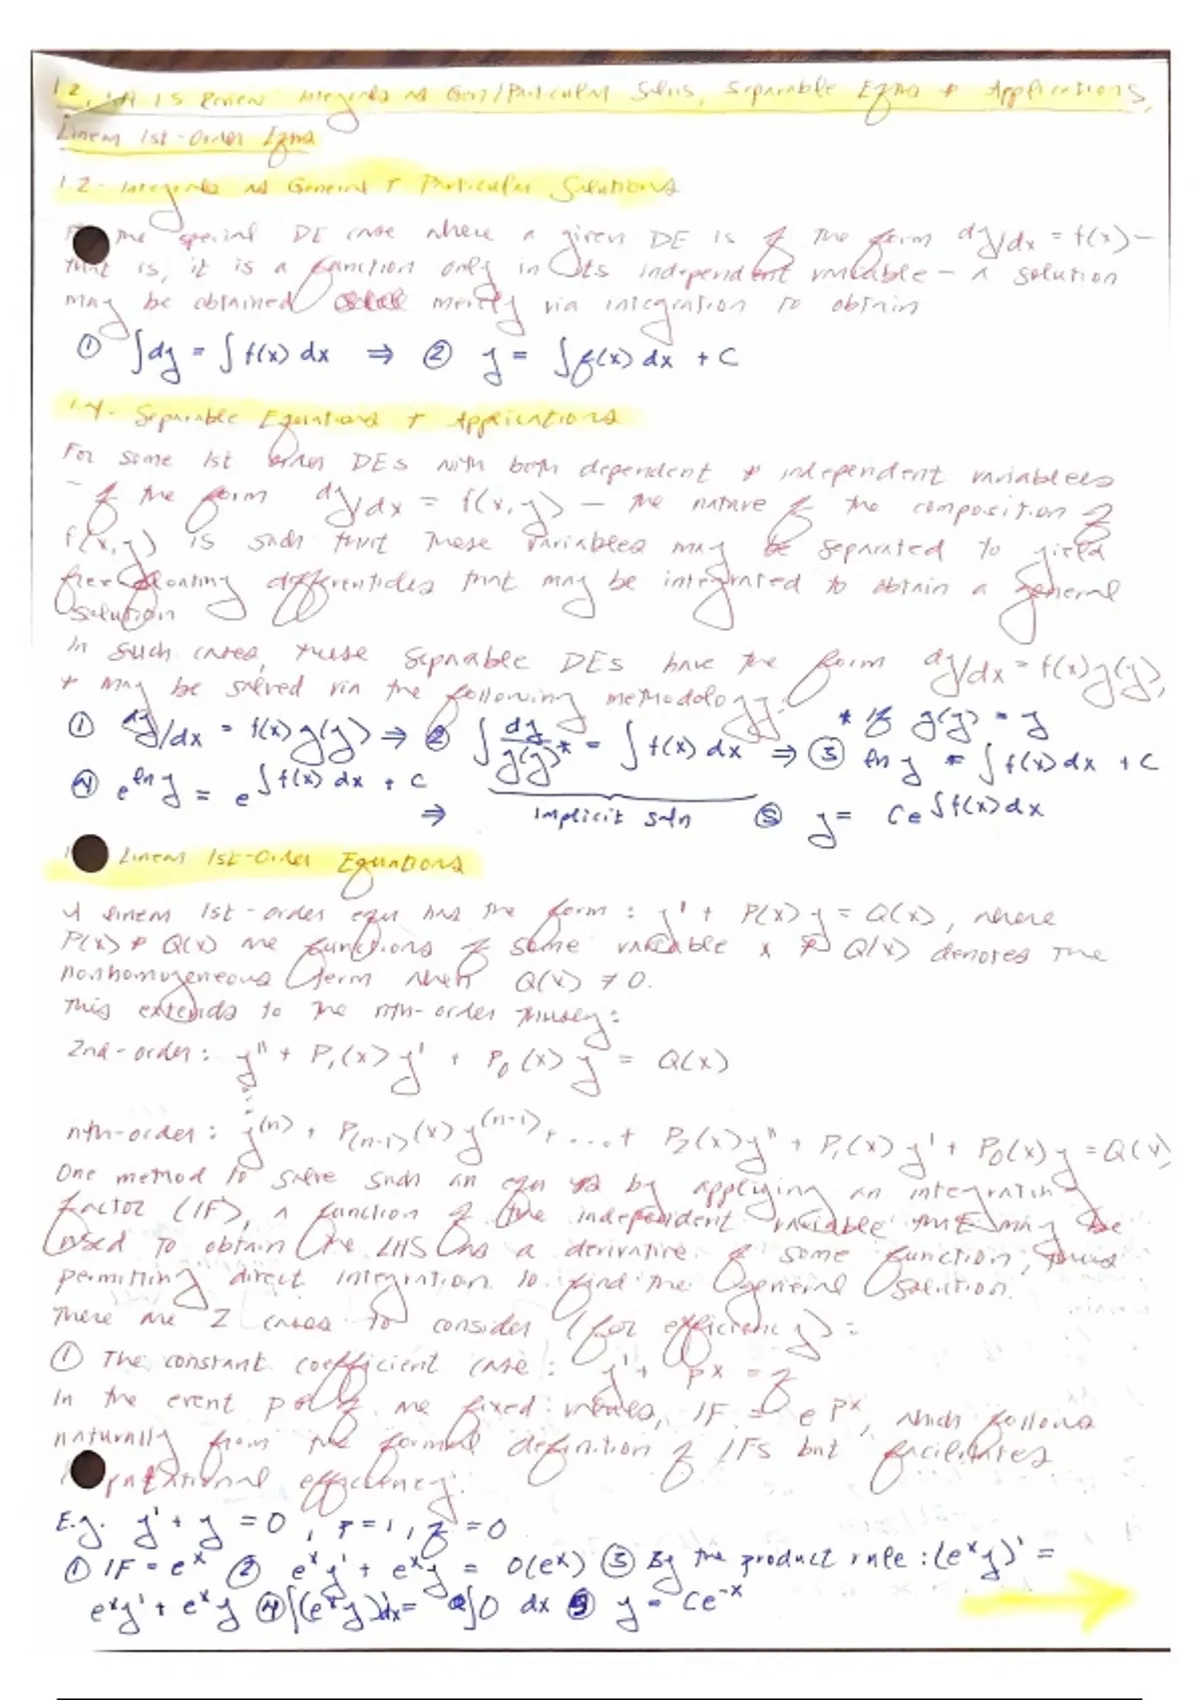 1.5 Review Integrals as Gen/Particular Solns, Separable Eqns & Applications,
Linear 1st-Order Eqns
1.2- Integrals as General + Particular Solutions
the special DE case where a given DE is of the form dy/dx = f(x) —
that is, it is a function only in its independent variable — a solution
may be obtained merely via integration to obtain
① ∫dy = ∫f(x) dx ⇒ ② y = ∫f(x) dx + C
1.4- Separable Equations + Applications
For some 1st order DEs with both dependent & independent variables
- of the form dy/dx = f(x,y) — the nature of the composition of
f(x,y) is such that these variables may be separated to yield
free floating differentials that may be integrated to obtain a general
solution
In such cases, these separable DEs have the form dy/dx = f(x)g(y),
+ may be solved via the following methodology:
① dy/dx = f(x)g(y) ⇒ ② ∫ dy/g(y)* = ∫ f(x) dx ⇒ ③ ln y = ∫ f(x) dx + C
* If g(y) = y
④ e^ln y = e^∫f(x) dx + C ⇒ ⑤ y = Ce^∫f(x)dx
implicit soln
Linear 1st-Order Equations
A linear 1st-order eqn has the form: y' + P(x)y = Q(x), where
P(x) & Q(x) are functions of some variable x & Q(x) denotes the
nonhomogeneous term when Q(x) ≠ 0.
This extends to the nth-order thusly:
2nd-order: y'' + P₁(x)y' + P₀(x)y = Q(x)
nth-order: y^(n) + P(n-1)(x)y^(n-1) + ... + P₂(x)y'' + P₁(x)y' + P₀(x)y = Q(x)
One method to solve such an eqn is by applying an integrating
factor (IF), a function of the independent variable that may be
used to obtain the LHS as a derivative of some function, thus
permitting direct integration to find the general solution.
There are 2 cases to consider (for efficiency):
① The constant coefficient case: y' + px = q
In the event p & q are fixed values, IF = e^px, which follows
naturally from the formal definition of IFs but facilitates
computational efficiency.
E.g. y' + y = 0, p = 1, q = 0
① IF = e^x ② e^x y' + e^x y = 0(e^x) ③ By the product rule: (e^x y)' =
e^x y' + e^x y ④ ∫(e^x y)'dx = ∫0 dx ⑤ y = Ce^-x